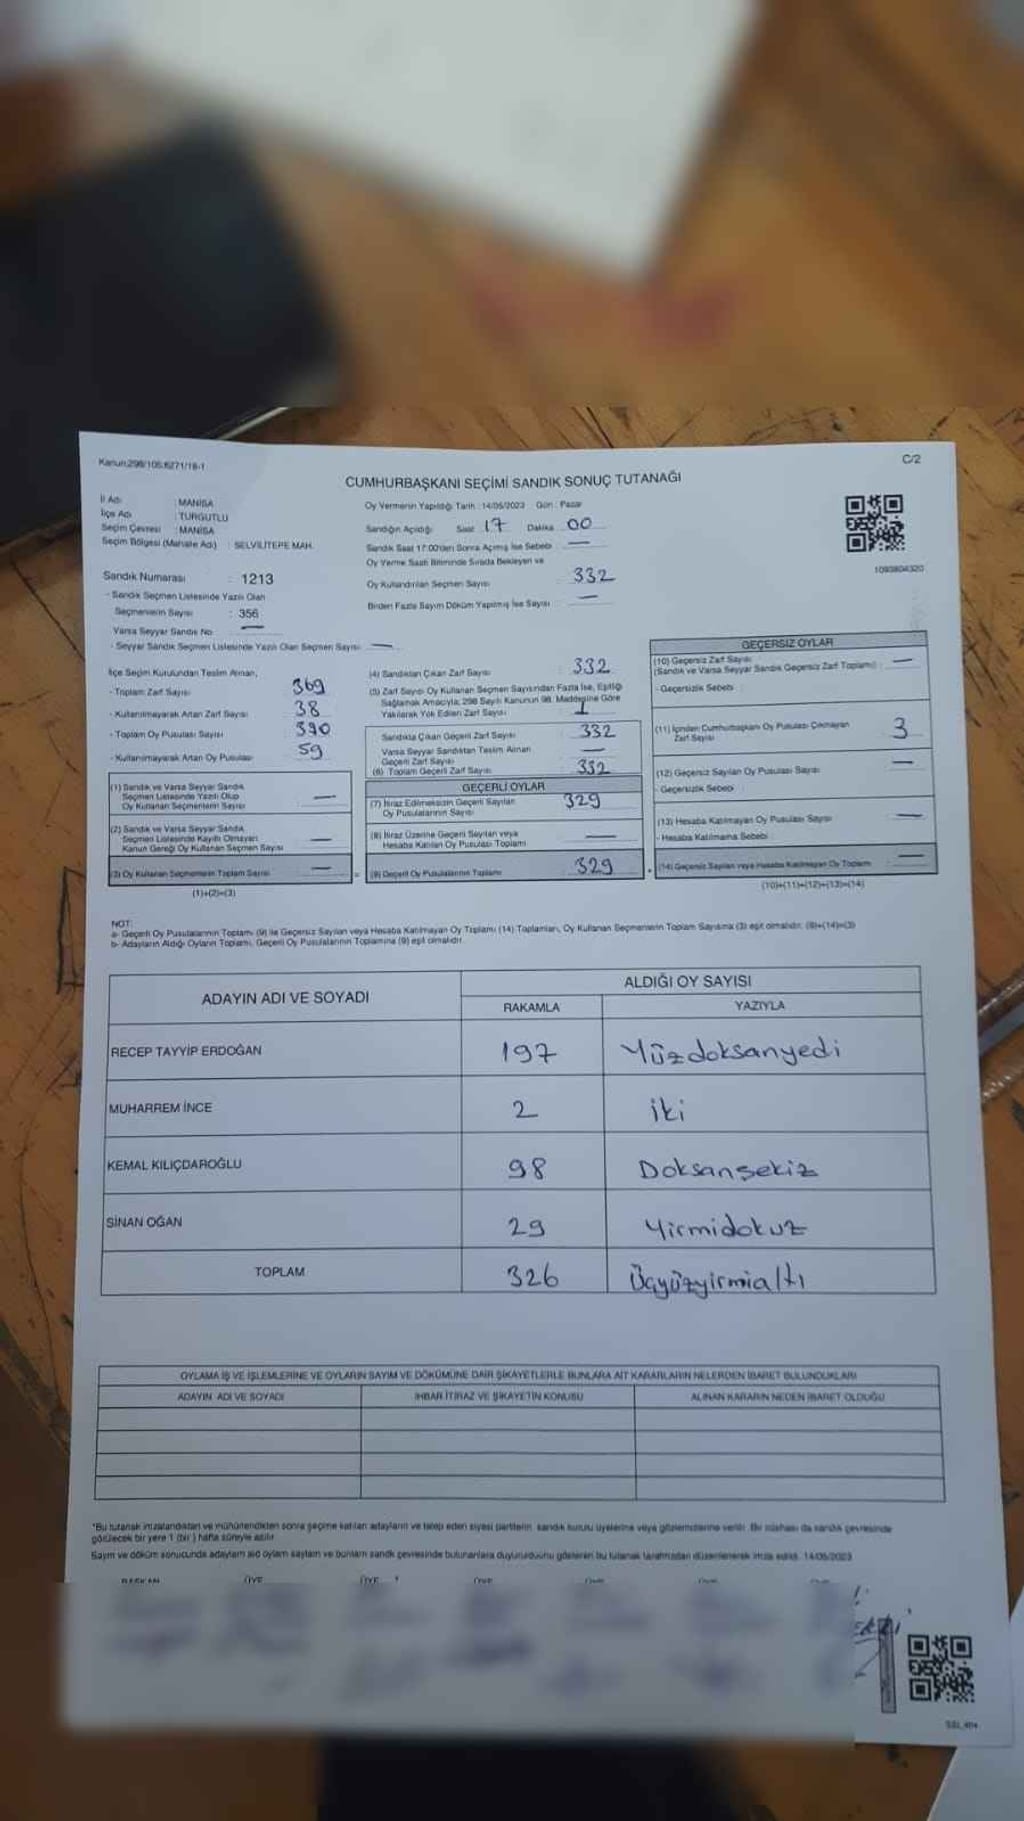 Kanun:298/105;6271/18-1
C/2
CUMHURBAŞKANI SEÇİMİ SANDIK SONUÇ TUTANAĞI
İl Adı : MANİSA
İlçe Adı : TURGUTLU
Seçim Çevresi : MANİSA
Seçim Bölgesi (Mahalle Adı) : SELVİLİTEPE MAH.
Sandık Numarası : 1213
- Sandık Seçmen Listesinde Yazılı Olan
Seçmenlerin Sayısı : 356
Varsa Seyyar Sandık No —
- Seyyar Sandık Seçmen Listesinde Yazılı Olan Seçmen Sayısı —
Oy Vermenin Yapıldığı Tarih : 14/05/2023 Gün : Pazar
Sandığın Açıldığı Saat 17 Dakika 00
Sandık Saat 17:00'den Sonra Açılmış İse Sebebi —
Oy Verme Saati Bitiminde Sırada Bekleyen ve
Oy Kullandırılan Seçmen Sayısı 332
Birden Fazla Sayım Döküm Yapılmış İse Sayısı —
1093804320
İlçe Seçim Kurulundan Teslim Alınan,
- Toplam Zarf Sayısı 369
- Kullanılmayarak Artan Zarf Sayısı 38
- Toplam Oy Pusulası Sayısı 390
- Kullanılmayarak Artan Oy Pusulası 59
(1) Sandık ve Varsa Seyyar Sandık
Seçmen Listesinde Yazılı Olup
Oy Kullanan Seçmenlerin Sayısı —
(2) Sandık ve Varsa Seyyar Sandık
Seçmen Listesinde Kayıtlı Olmayan
Kanun Gereği Oy Kullanan Seçmen Sayısı —
(3) Oy Kullanan Seçmenlerin Toplam Sayısı —
(1)+(2)=(3)
(4) Sandıktan Çıkan Zarf Sayısı : 332
(5) Zarf Sayısı Oy Kullanan Seçmen Sayısından Fazla İse, Eşitliği
Sağlamak Amacıyla; 298 Sayılı Kanunun 98. Maddesine Göre
Yakılarak Yok Edilen Zarf Sayısı 1
Sandıkta Çıkan Geçerli Zarf Sayısı 332
Varsa Seyyar Sandıktan Teslim Alınan
Geçerli Zarf Sayısı —
(6) Toplam Geçerli Zarf Sayısı 332
GEÇERLİ OYLAR
(7) İtiraz Edilmeksizin Geçerli Sayılan
Oy Pusulalarının Sayısı 329
(8) İtiraz Üzerine Geçerli Sayılan veya
Hesaba Katılan Oy Pusulası Toplamı —
(9) Geçerli Oy Pusulalarının Toplamı 329
GEÇERSİZ OYLAR
(10) Geçersiz Zarf Sayısı
(Sandık ve Varsa Seyyar Sandık Geçersiz Zarf Toplamı) : —
- Geçersizlik Sebebi
(11) İçinden Cumhurbaşkanı Oy Pusulası Çıkmayan
Zarf Sayısı 3
(12) Geçersiz Sayılan Oy Pusulası Sayısı —
- Geçersizlik Sebebi
(13) Hesaba Katılmayan Oy Pusulası Sayısı —
- Hesaba Katılmama Sebebi
(14) Geçersiz Sayılan veya Hesaba Katılmayan Oy Toplamı —
(10)+(11)+(12)+(13)=(14)
NOT:
a- Geçerli Oy Pusulalarının Toplamı (9) ile Geçersiz Sayılan veya Hesaba Katılmayan Oy Toplamı (14) Toplamları, Oy Kullanan Seçmenlerin Toplam Sayısına (3) eşit olmalıdır. (9)+(14)=(3)
b- Adayların Aldığı Oyların Toplamı, Geçerli Oy Pusulalarının Toplamına (9) eşit olmalıdır.
ADAYIN ADI VE SOYADI
ALDIĞI OY SAYISI
RAKAMLA YAZIYLA
RECEP TAYYİP ERDOĞAN 197 Yüzdoksanyedi
MUHARREM İNCE 2 iki
KEMAL KILIÇDAROĞLU 98 Doksansekiz
SİNAN OĞAN 29 Yirmidokuz
TOPLAM 326 Üçyüzyirmialtı
OYLAMA İŞ VE İŞLEMLERİNE VE OYLARIN SAYIM VE DÖKÜMÜNE DAİR ŞİKAYETLERLE BUNLARA AİT KARARLARIN NELERDEN İBARET BULUNDUKLARI
ADAYIN ADI VE SOYADI İHBAR İTİRAZ VE ŞİKAYETİN KONUSU ALINAN KARARIN NEDEN İBARET OLDUĞU
*Bu tutanak imzalandıktan ve mühürlendikten sonra seçime katılan adayların ve talep eden siyasi partilerin sandık kurulu üyelerine veya gözlemcilerine verilir. Bir nüshası da sandık çevresinde
görülecek bir yere 1 (bir) hafta süreyle asılır.
Sayım ve döküm sonucunda adayların aldığı oyların sayıları ve bunların sandık çevresinde bulunanlara duyurulduğunu gösteren bu tutanak tarafımızdan düzenlenerek imza edildi. 14/05/2023
BAŞKAN ÜYE ÜYE ÜYE ÜYE ÜYE